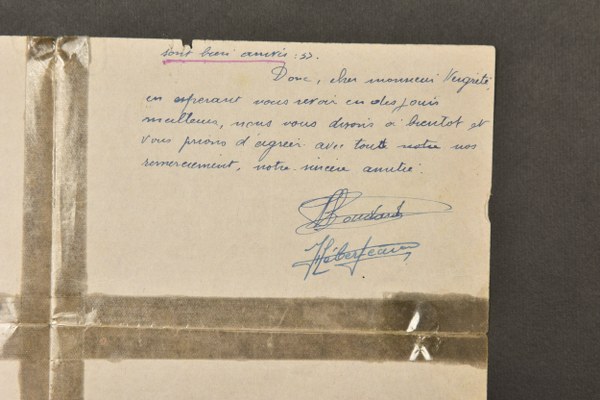 sont bien arrivés : 33.
Donc, cher monsieur
en esperant vous revoir en des jours
meilleurs, nous vous disons à bientot et
vous prions d'agréer avec toute notre nos
remerciement, notre sincère amitié.